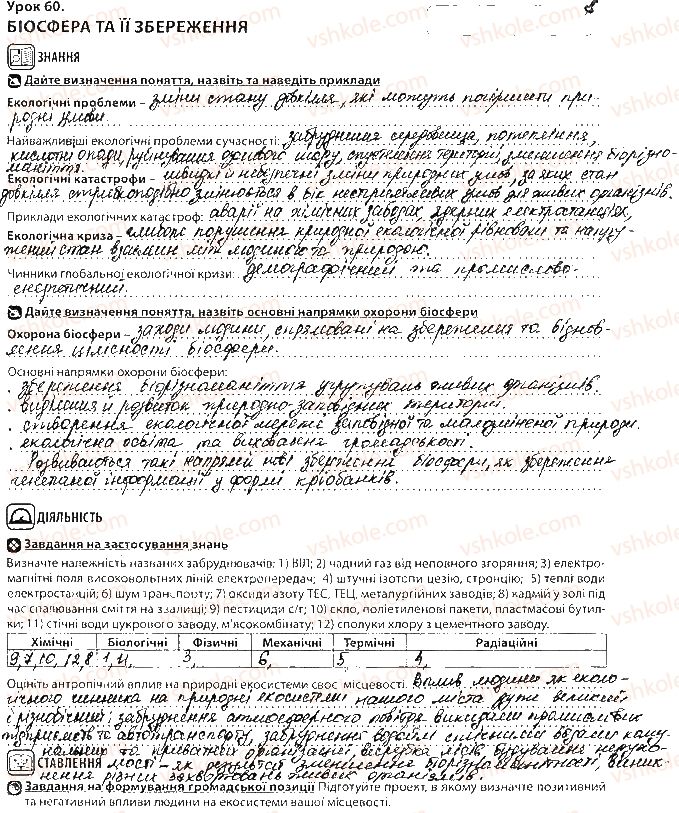 Урок 60.
БІОСФЕРА ТА ЇЇ ЗБЕРЕЖЕННЯ
ЗНАННЯ
Дайте визначення поняття, назвіть та наведіть приклади
Екологічні проблеми – зміни стану довкілля, які можуть погіршити при-
родні умови.
Найважливіші екологічні проблеми сучасності: забруднення середовища, потепління,
кислотні опади, руйнування озонового шару, спустелення територій, зменшення біорізно-
маніття.
Екологічні катастрофи – швидкі й небезпечні зміни природних умов, за яких стан
довкілля стрибкоподібно змінюється в бік несприятливих умов для живих організмів.
Приклади екологічних катастроф: аварії на хімічних заводах, ядерних електростанціях,
Екологічна криза – глибоке порушення природної екологічної рівноваги та напру-
жений стан взаємин між людиною та природою.
Чинники глобальної екологічної кризи: демографічний та промислово-
енергетичний.
Дайте визначення поняття, назвіть основні напрямки охорони біосфери
Охорона біосфери – заходи людини, спрямовані на збереження та віднов-
лення цілісності біосфери.
Основні напрямки охорони біосфери:
· збереження біорізноманіття угрупувань живих організмів.
· виділення й розвиток природно-заповідних територій.
· створення екологічної мережі заповідної та малозміненої природи.
· екологічна освіта та виховання громадськості.
Розвиваються такі напрямки нові збереження біосфери, як збереження
генетичної інформації у формі кріобанків.
ДІЯЛЬНІСТЬ
Завдання на застосування знань
Визначте належність названих забруднювачів: 1) ВІЛ; 2) чадний газ від неповного згоряння; 3) електро-
магнітні поля високовольтних ліній електропередач; 4) штучні ізотопи цезію, стронцію; 5) теплі води
електростанцій; 6) шум транспорту; 7) оксиди азоту ТЕС, ТЕЦ, металургійних заводів; 8) кадмій у золі під
час спалювання сміття на звалищі; 9) пестициди с/г; 10) скло, поліетиленові пакети, пластмасові бутил-
ки; 11) стічні води цукрового заводу, м'ясокомбінату; 12) сполуки хлору з цементного заводу.
Хімічні Біологічні Фізичні Механічні Термічні Радіаційні
9,7,10,12,8 1,11, 3, 6, 5 4,
Оцініть антропічний вплив на природні екосистеми своєї місцевості. Вплив людини як еколо-
гічного чинника на природні екосистеми нашого міста дуже великий
і різнобічний: забруднення атмосферного повітря викидами промислових
підприємств та автотранспорту, забруднення водойм стічними водами кому-
нальних та приватних організацій, вирубка лісів, будування нерухо-
СТАВЛЕННЯ мості – як результат зменшення біорізноманітності, виник-
нення різних захворювань живих організмів.
Завдання на формування громадської позиції Підготуйте проект, в якому визначте позитивний
та негативний впливи людини на екосистеми вашої місцевості.